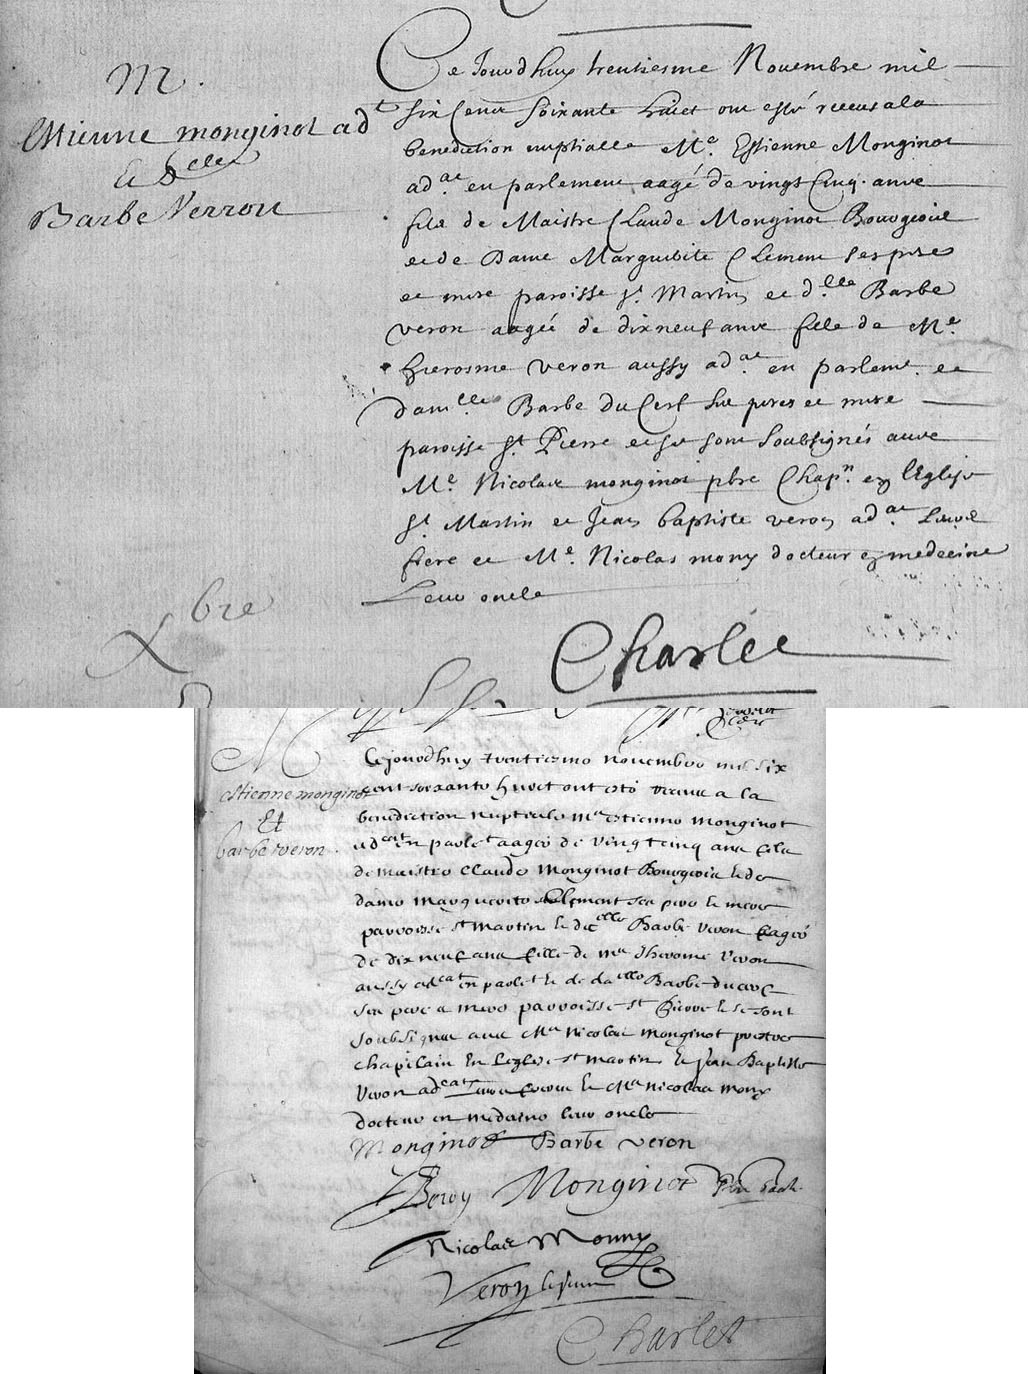 M.
Estienne monginot ad^t
& D^elle
Barbe Verron
Ce Jourd huy trentiesme Nouembre mil
six Cent soixante huict ont esté receus a la
benediction nuptialle M^e. Estienne Monginot
ad^at en parlement aagé de vingt Cinq. ans
fils de Maistre Claude Monginot Bourgeois
et de Dame Marguerite Clement ses pere
et mere paroisse S^t. Martin et d^elle Barbe
veron aagée de dix neuf ans fille de M^e.
Hierosme veron aussy ad^at en parlem^t. et
dam^lle Barbe du Cerf ses peres et mere
paroisse S^t. Pierre et se sont soubsignés auec
M^e. Nicolas monginot pbre Chap^n. en l'Eglise
S^t Martin et Jean baptiste veron ad^at Leurs
frere et M^e. Nicolas mony docteur en medecine
Leur oncle
Charlet
Xbre
M
Estienne monginot
Et
barbe veron
Cejourdhuy trentiesme nouembre mil six
cent soixante huict ont esté receus a la
benediction nuptiale M^e Estienne Monginot
ad^cat en parle^t aagé de vingt cinq ans fils
de maistre Claude Monginot Bourgeois et de
dame Marguerite Clement ses pere et mere
parroisse S^t Martin et d^elle Barbe Veron aagée
de dix neuf ans fille de M^e Iherome Veron
aussy ad^cat en parle^t et de da^elle Barbe ducerf
ses pere & mere parroisse S^t Pierre et se sont
soubsignez auec M^e Nicolas Monginot prestre
chapelain En Leglise S^t Martin et Jean Baptiste
Veron ad^cat Leurs freres et M^e Nicolas mony
docteur en medecine leur oncle
Monginot Barbe veron
Veron Monginot
Nicolas Monny
Veron le jeune
Charlet